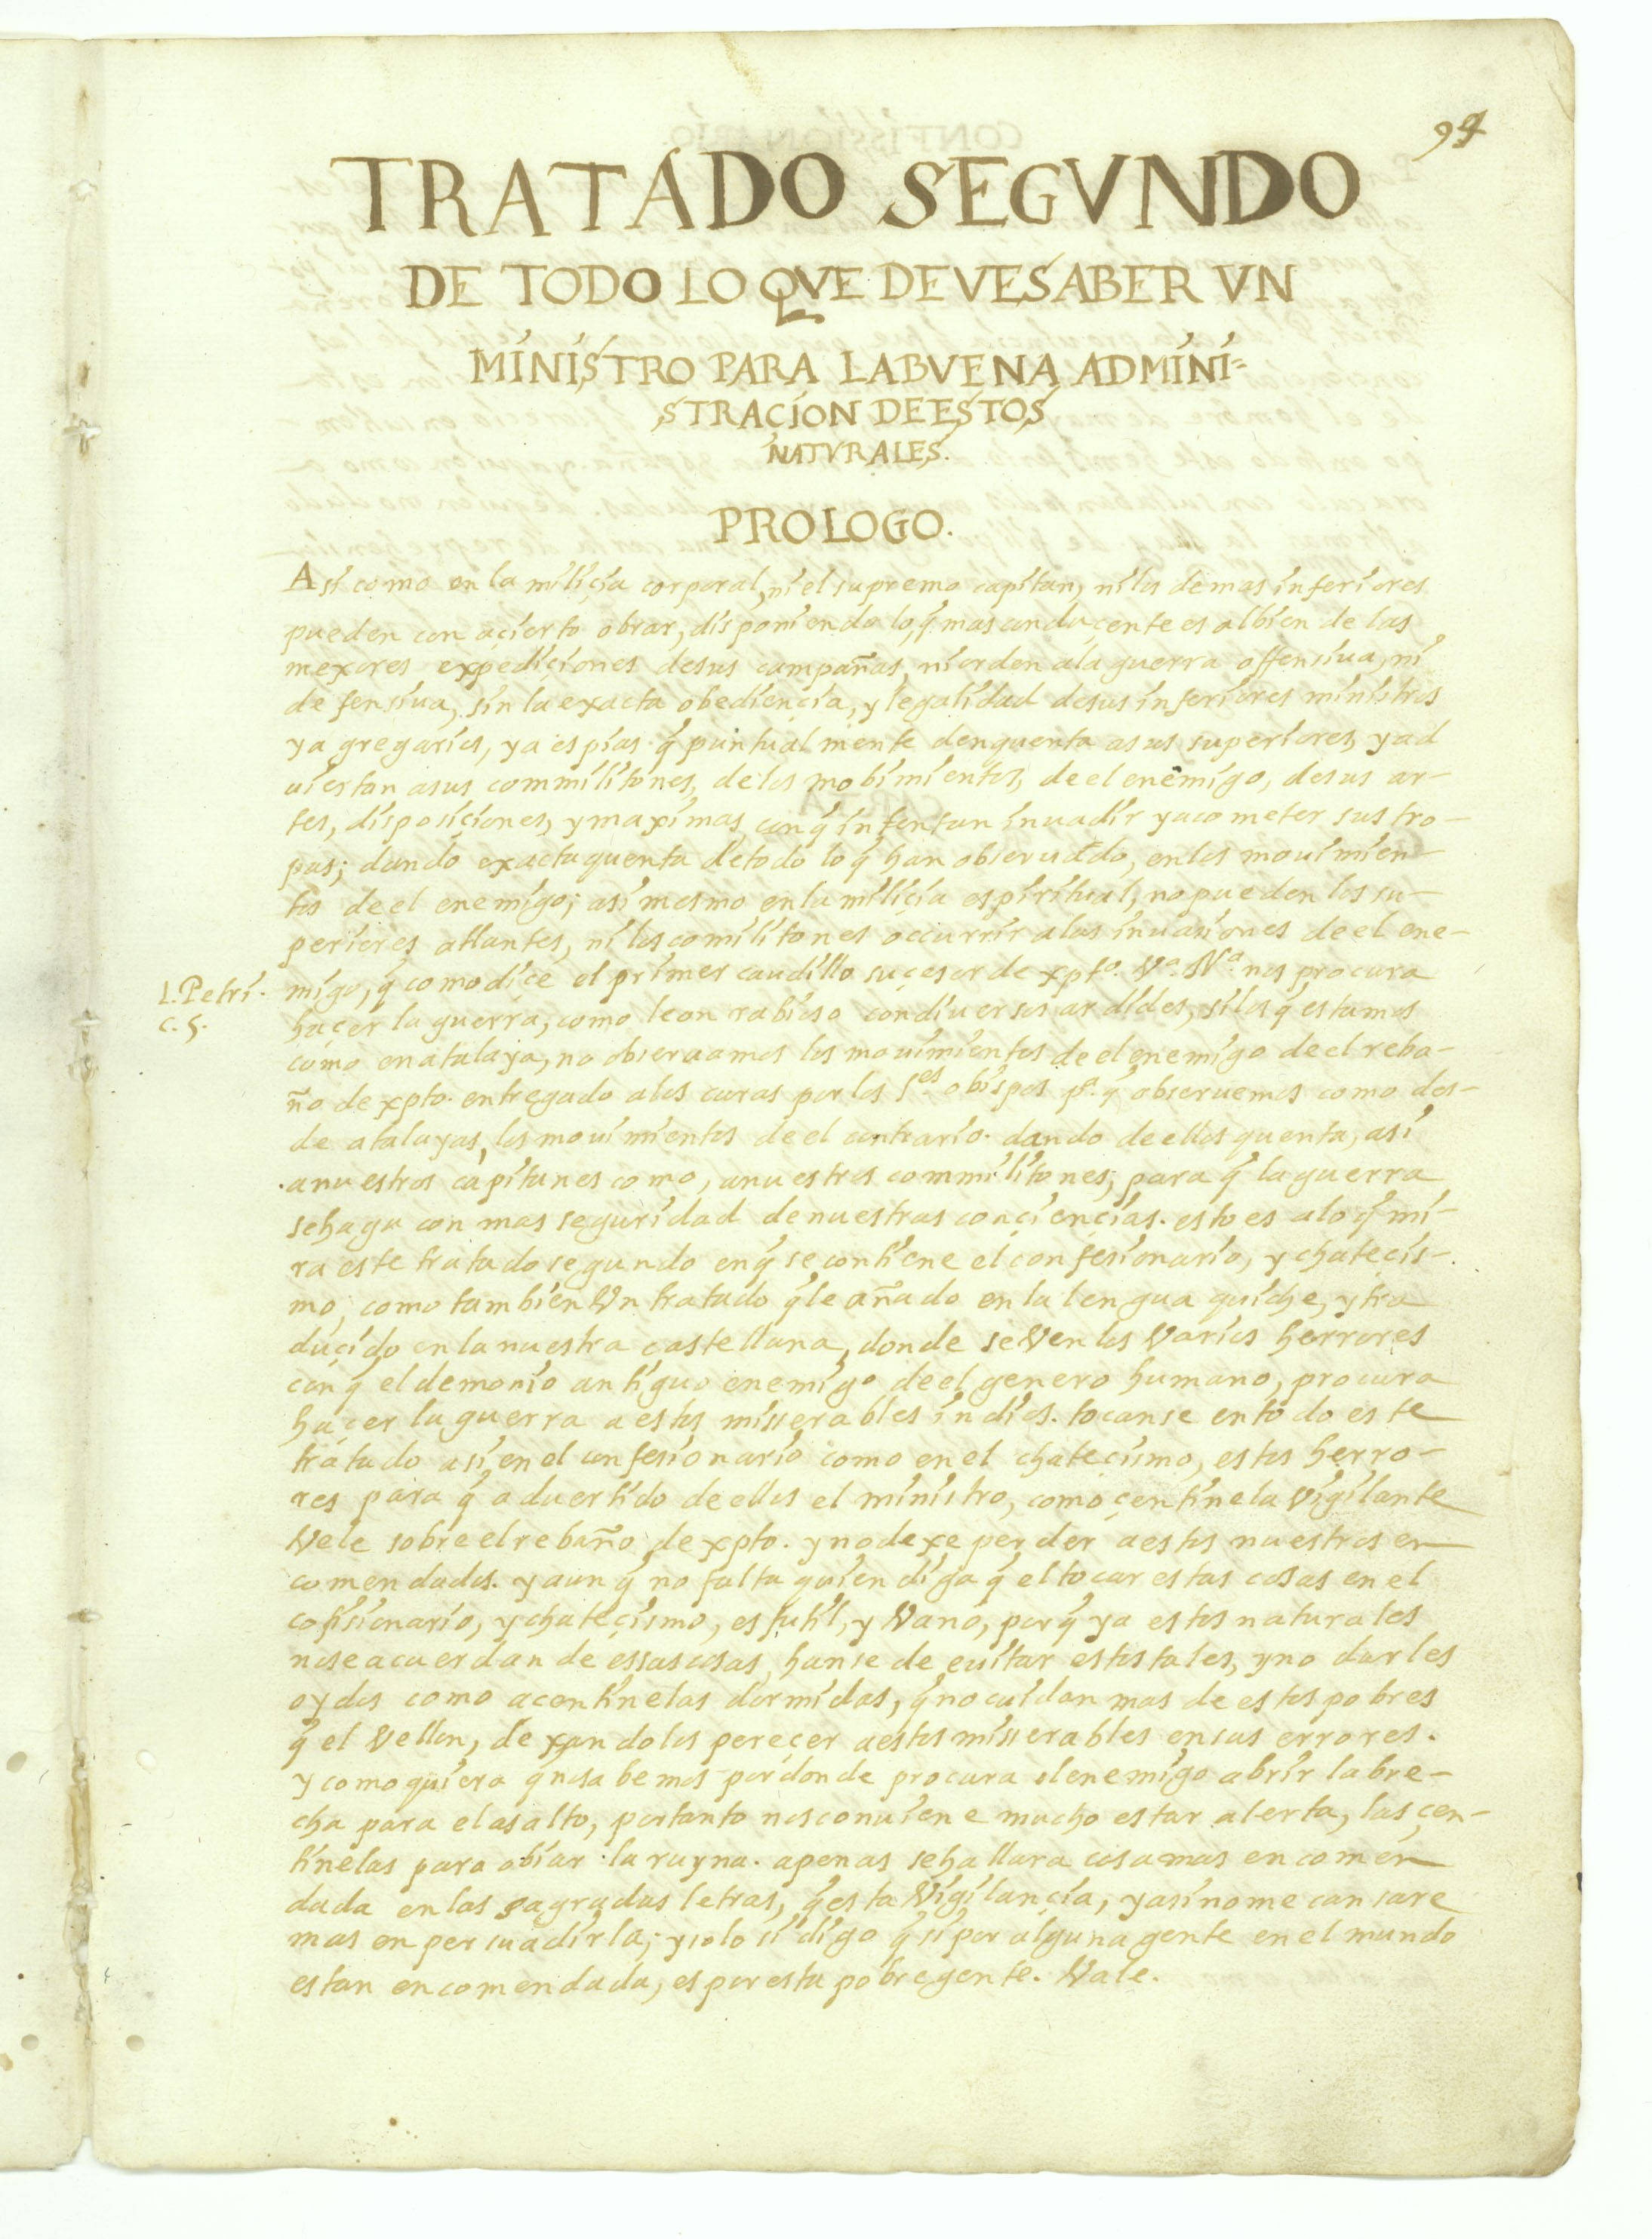 94
TRATADO SEGVNDO
DE TODO LO QVE DEVE SABER VN
MINISTRO PARA LA BVENA ADMINI=
STRAÇION DE ESTOS
NATVRALES.
PROLOGO.
Asi como en la miliçia corporal, ni el supremo capitan, ni los demas inferiores
pueden con açierto obrar, disponiendo lo q̃ mas conduçente es al bien de las
mexores expediçiones de sus campañas, ni orden a la guerra offensiua, ni
defensiua, sin la exacta obediençia, y legalidad de sus inferiores ministros
ya gregarios, ya espias q̃ puntual mente den quenta a sus superiores, y ad
uiertan a sus commilitones, de los mobimientos, de el enemigo, de sus ar-
tes, disposiçiones, y maximas con q̃ intentan inuadir y acometer sus tro-
pas; dando exacta quenta de todo lo q̃ han obseruado, en los mouimien-
tos de el enemigo; asi mesmo en la miliçia espiritual, no pueden los su-
periores atlantes, ni los comilitones occurrir a las inuasiones de el ene-
migo, q̃ como diçe el primer caudillo suçesor de xpto. Vª. Nª. nos procura
1. Petri.
c. 5.
haçer la guerra, como leon rabioso con diuersos ardides, si los q̃ estamos
como en atalaya, no obseruamos los mouimientos de el enemigo de el reba-
ño de xpto. entregado a los curas por los S.es obispos pª. q̃ obseruemos como des-
de atalayas, los mouimientos de el contrario. dando de ellos quenta, asi
a nuestros capitanes como, a nuestros commilitones; para q̃ la guerra
se haga con mas seguridad de nuestras conçiençias. esto es a lo q̃ mi-
ra este tratado segundo en q̃ se contiene el confesionario, y chatecis-
mo, como tambien Vn tratado q̃ le añado en la lengua quiche, y tra
duçido en la nuestra castellana, donde se Ven los Varios herrores
con q̃ el demonio antiguo enemigo de el genero humano, procura
haçer la guerra a estos misserables indios. tocanse en todo este
tratado asi en el confesionario como en el chateçismo, estos herro-
res para q̃ aduertido de ellos el ministro, como çentinela Vigilante
Vele sobre el rebaño de xpto. y no dexe perder a estos nuestros en
comendados. y aun q̃ no falta quien diga q̃ el tocar estas cosas en el
cofisionario, y chateçismo, es futil, y Vano, por q̃ ya estos naturales
no se acuerdan de essas cosas, hanse de euitar estos tales, y no darles
oydos como a centinelas dormidas, q̃ no cuidan mas de estos pobres
q̃ el Vellon, dexandolos pereçer a estos misserables en sus errores.
y como quiera q̃ no sabemos por donde procura el enemigo abrir la bre-
cha para el asalto, por tanto nos conuiene mucho estar alerta, las çen-
tinelas para obiar la ruyna. apenas se hallara cosa mas encomen
dada en las sagradas letras, q̃ esta Vigilançia, y asi no me cansare
mas en persuadirla; y solo si digo q̃ si por alguna gente en el mundo
estan encomendada, es por esta pobre gente. Vale.